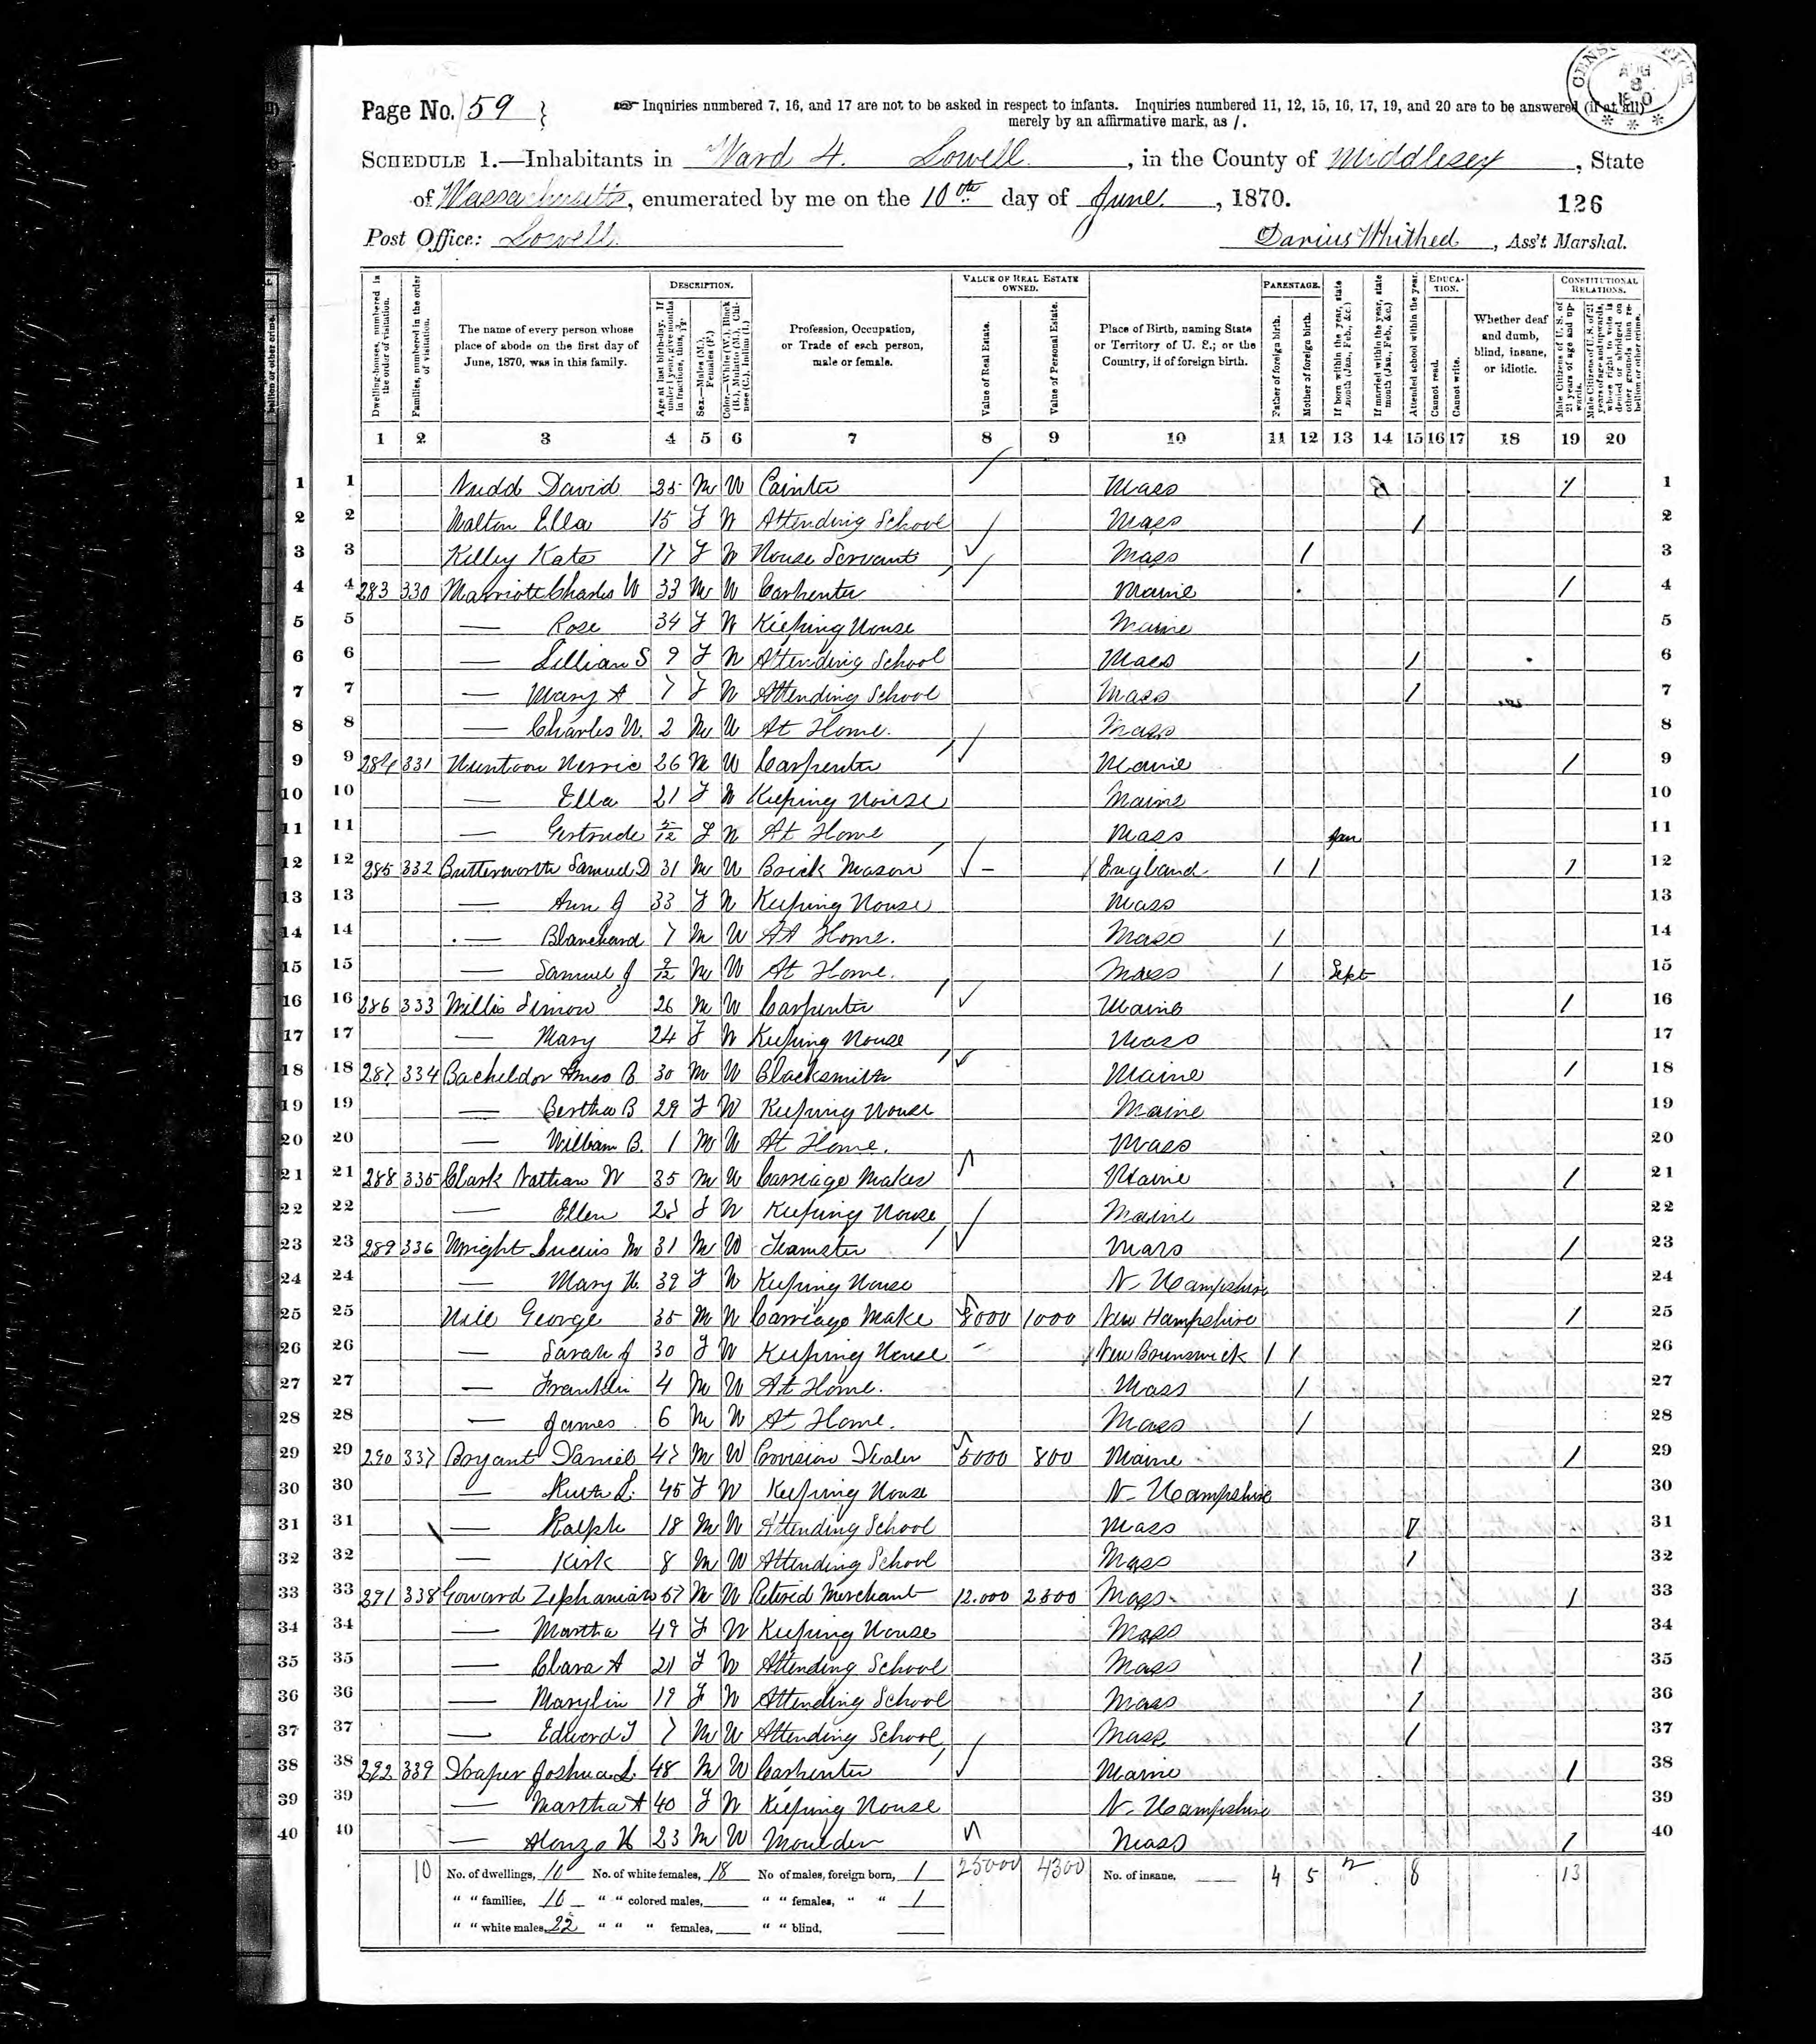 CENSUS OFFICE AUG 8 1870
Page No. 59 } Inquiries numbered 7, 16, and 17 are not to be asked in respect to infants. Inquiries numbered 11, 12, 15, 16, 17, 19, and 20 are to be answered (if at all)
merely by an affirmative mark, as /.
SCHEDULE 1.—Inhabitants in Ward 4. Lowell, in the County of Middlesex, State
of Massachusetts, enumerated by me on the 10th day of June, 1870. 126
Post Office: Lowell. Darius Whithed, Ass't Marshal.
Dwelling-houses, numbered in the order of visitation.
Families, numbered in the order of visitation.
The name of every person whose place of abode on the first day of June, 1870, was in this family.
DESCRIPTION.
Age at last birth-day. If under 1 year, give months in fractions, thus, 3/12.
Sex.—Males (M.), Females (F.)
Color.—White (W.), Black (B.), Mulatto (M.), Chinese (C.), Indian (I.)
Profession, Occupation, or Trade of each person, male or female.
VALUE OF REAL ESTATE OWNED.
Value of Real Estate.
Value of Personal Estate.
Place of Birth, naming State or Territory of U. S.; or the Country, if of foreign birth.
PARENTAGE.
Father of foreign birth.
Mother of foreign birth.
If born within the year, state month (Jan., Feb., &c.)
If married within the year, state month (Jan., Feb., &c.)
Attended school within the year.
EDUCATION.
Cannot read.
Cannot write.
Whether deaf and dumb, blind, insane, or idiotic.
CONSTITUTIONAL RELATIONS.
Male Citizens of U. S. of 21 years of age and upwards.
Male Citizens of U. S. of 21 years of age and upwards whose right to vote is denied or abridged on other grounds than rebellion or other crime.
1 2 3 4 5 6 7 8 9 10 11 12 13 14 15 16 17 18 19 20
1 1 Nudd David 25 M W Painter Mass / 1
2 2 Walton Ella 15 F W Attending School Mass / 2
3 3 Killey Kate 17 F W House Servant Mass / 3
4 4 283 330 Marriott Charles W 33 M W Carpenter Maine / 4
5 5 — Rose 34 F W Keeping House Maine 5
6 6 — Lillian S 9 F W Attending School Mass / 6
7 7 — Mary A 7 F W Attending School Mass / 7
8 8 — Charles W. 2 M W At Home. Mass 8
9 9 284 331 Huntoon 26 M W Carpenter Maine / 9
10 10 — Ella 21 F W Keeping House Maine 10
11 11 — Gertrude 5/12 F W At Home Mass Jan 11
12 12 285 332 Butterworth Samuel D 31 M W Brick Mason — England / / / 12
13 13 — Ann J 33 F W Keeping House Mass 13
14 14 — Blanchard 7 M W At Home. Mass / 14
15 15 — Samuel J 9/12 M W At Home. Mass / Sept 15
16 16 286 333 Willis Simon 26 M W Carpenter Maine / 16
17 17 — Mary 24 F W Keeping House Mass 17
18 18 287 334 Bacheldor Amos B 30 M W Blacksmith Maine / 18
19 19 — Bertha B 29 F W Keeping House Maine 19
20 20 — William B. 1 M W At Home. Mass 20
21 21 288 335 Clark Nathan W 35 M W Carriage Maker Maine / 21
22 22 — Ellen F W Keeping House Maine 22
23 23 289 336 Wright Lucius M 31 M W Teamster Mass / 23
24 24 — Mary H. 39 F W Keeping House N. Hampshire 24
25 25 Hill George 35 M W Carriage Make 8000 1000 New Hampshire / 25
26 26 — Sarah J 30 F W Keeping House — New Brunswick / / 26
27 27 — Franklin 4 M W At Home. Mass / 27
28 28 — James 6 M W At Home. Mass / 28
29 29 290 337 Bryant Daniel 47 M W Provision Dealer 5000 800 Maine / 29
30 30 — Ruth L. 45 F W Keeping House N. Hampshire 30
31 31 — Ralph 18 M W Attending School Mass / 31
32 32 — Kirk 8 M W Attending School Mass / 32
33 33 291 338 Goward Zephaniah 57 M W Retired Merchant 12.000 2500 Mass / 33
34 34 — Martha 49 F W Keeping House Mass 34
35 35 — Clara A 21 F W Attending School Mass / 35
36 36 — Marylin 19 F W Attending School Mass / 36
37 37 — Edward T 7 M W Attending School Mass / 37
38 38 292 339 Draper Joshua L. 48 M W Carpenter Maine / 38
39 39 — Martha A 40 F W Keeping House N. Hampshire 39
40 40 — Alonzo H 23 M W Moulder Mass / 40
10 No. of dwellings, 10 No. of white females, 18 No of males, foreign born, 1 25000 4300 No. of insane, 4 5 2 8 13
" " families, 10 " " colored males, " " females, " " 1
" " white males, 22 " " " females, " " blind,